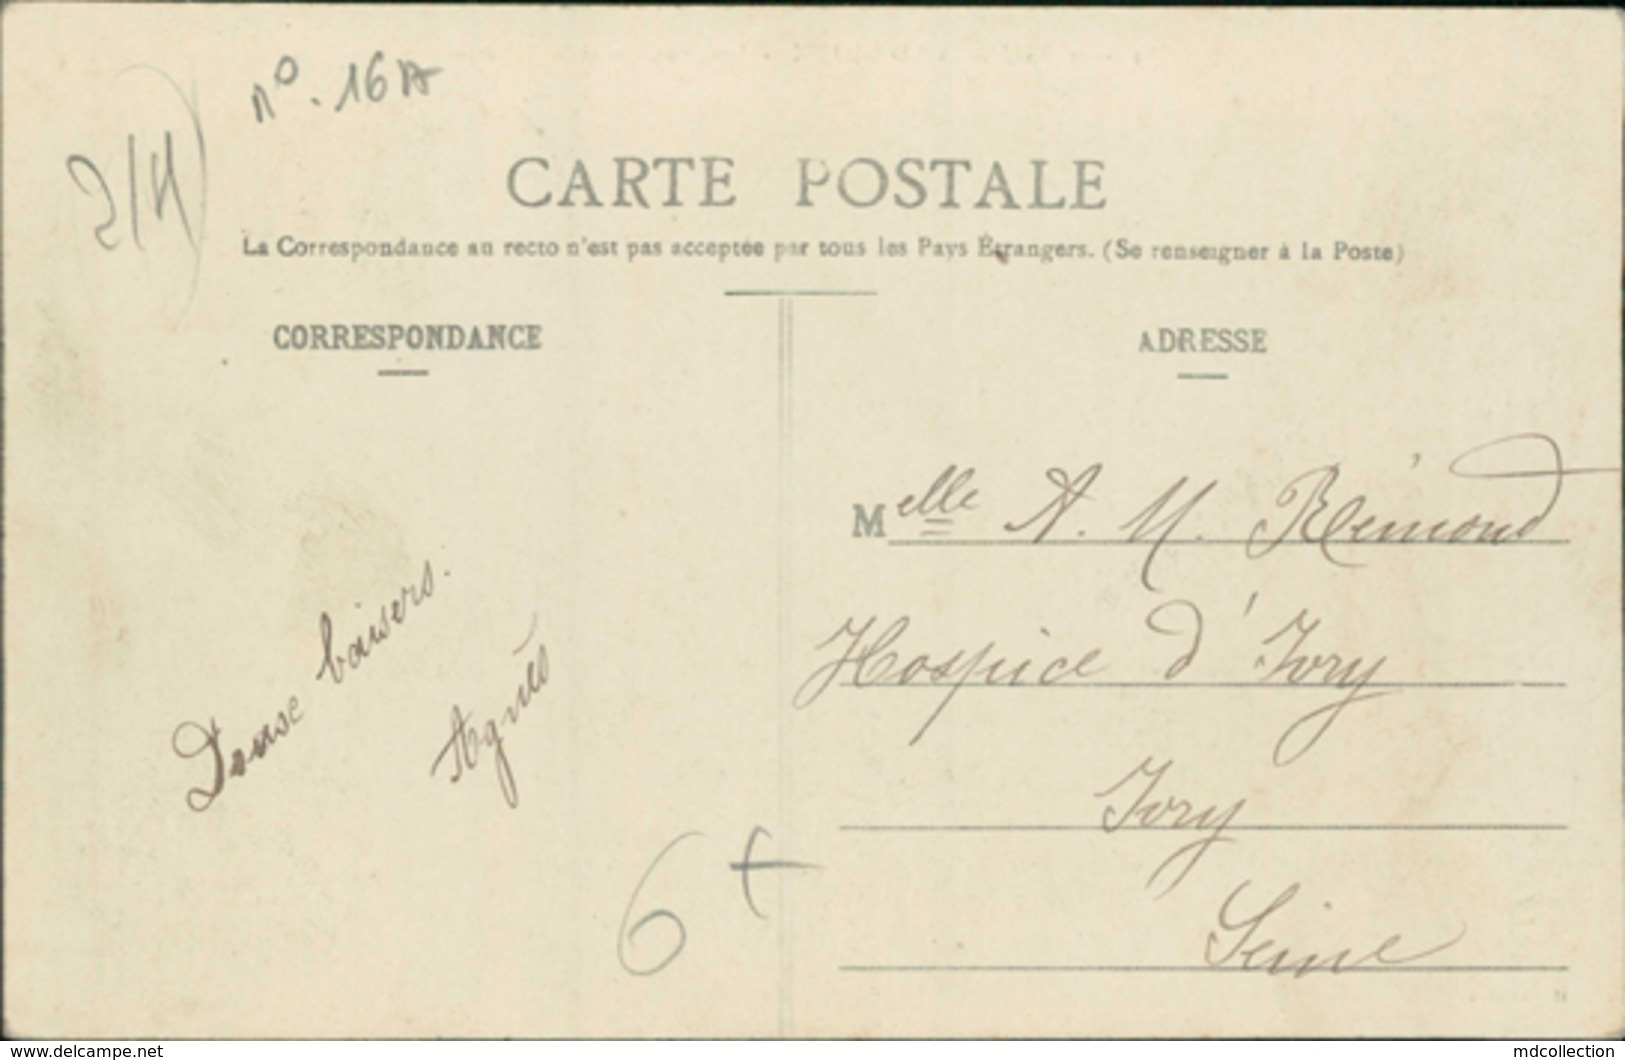 n°. 16A
2/4
CARTE POSTALE
La Correspondance au recto n'est pas acceptée par tous les Pays Étrangers. (Se renseigner à la Poste)
CORRESPONDANCE
ADRESSE
Melle A. M. Rémond
Hospice d'Ivry
Ivry
Seine
Douse baisers.
Agnès
6+
www.delcampe.net
mdcollection